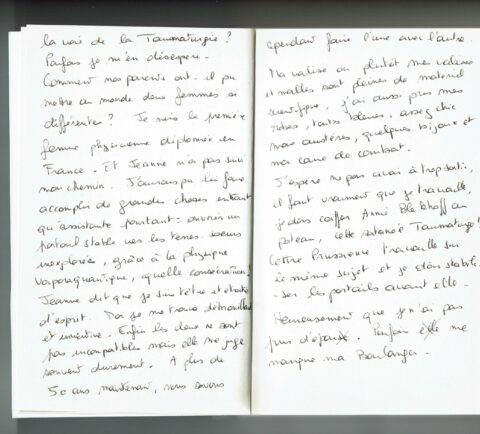 la voie de la Taumaturgie ?
Parfois je m'en désespère.
Comment nos parents ont-il pu
mettre au monde deux femmes si
différentes ? Je suis la première
femme physicienne diplomée en
France. Et Jeanne n'a pas suivi
mon chemin. J'aurais pu lui faire
accomplir de grandes choses en tant
qu'assistante pourtant : ouvrir un
portail stable vers les terres
inexplorées, grâce à la physique
vaporaquantique, quelle consécration !
Jeanne dit que je suis têtue et étroite
d'esprit. Moi je me trouve débrouillarde
et inventive. Enfin les deux ne sont
pas incompatibles mais elle me juge
souvent durement. A plus de
50 ans maintenant, nous savons
cependant faire l'une avec l'autre.
Ma valise ou plutôt mes valises
et malles sont pleines de matériel
scientifique, j'ai aussi pris mes
robes, toutes bleues, assez chic
mais austères, quelques bijoux et
ma cane de combat.
J'espère ne pas avoir à trop sortir,
il faut vraiment que je travaille,
je dois coiffer Anna au
poteau, cette satanée Taumaturge !
Cette Prussienne travaille sur
le même sujet et je dois stabili-
-ser les portails avant elle.
Heureusement que je n'ai pas
pris d'époux. Parfois elle me
manque ma Boulanger.